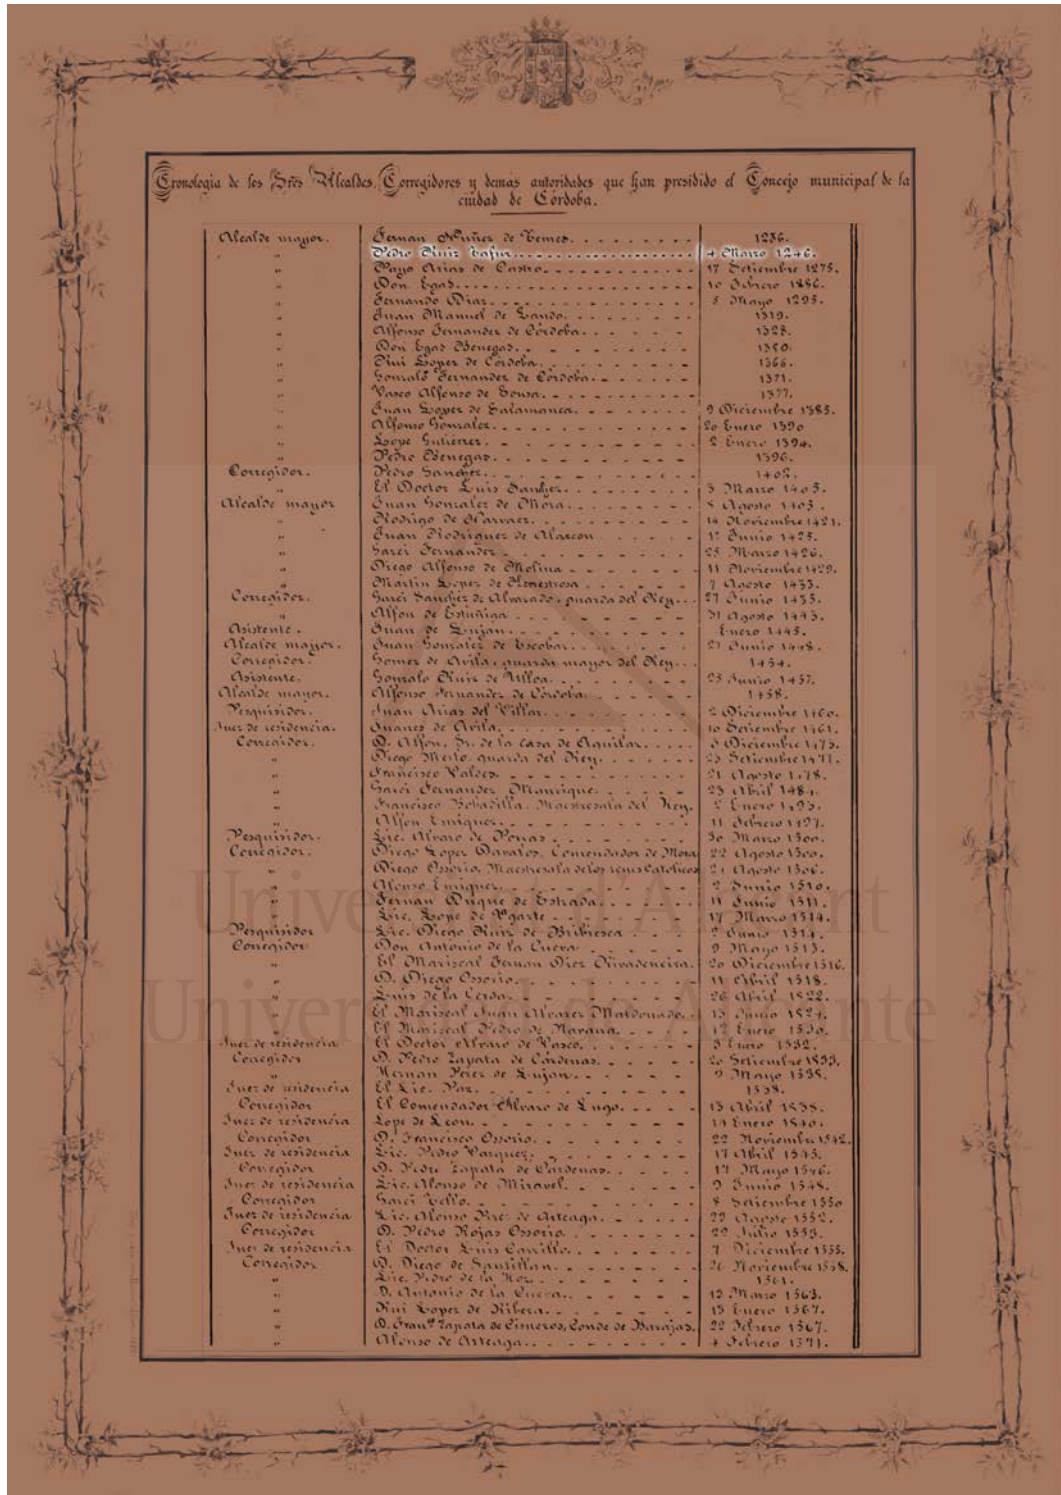 Cronologia de los Sres Alcaldes, Corregidores y demás autoridades que han presidido el Concejo municipal de la
ciudad de Córdoba.
Alcalde mayor. Fernan Nuñez de Temes. 1236.
" Pedro Ruiz Tafur. 4 Marzo 1246.
" Payo Arias de Castro. 17 Setiembre 1275.
" Don Egas. 10 Febrero 1286.
" Fernando Diaz. 8 Mayo 1293.
" Juan Manuel de Lando. 1319.
" Alfonso Fernandez de Córdoba. 1328.
" Don Egas Benegas. 1350.
" Rui Lopez de Córdoba. 1366.
" Gonzalo Fernandez de Córdoba. 1371.
" Vasco Alfonso de Sousa. 1377.
" Juan Lopez de Salamanca. 9 Diciembre 1385.
" Alfonso Gonzalez. 20 Enero 1390
" Lope Gutierrez. 2 Enero 1394.
" Pedro Benegas. 1396.
Corregidor. Pedro Sanchez. 1402.
" El Doctor Luis Sanchez. 3 Marzo 1403.
Alcalde mayor Juan Gonzalez de Mora. 8 Agosto 1403.
" Rodrigo de Narvaez. 14 Noviembre 1421.
" Juan Rodriguez de Alarcon 12 Junio 1425.
" Garci Fernandez 25 Marzo 1426.
" Diego Alfonso de Molina 11 Noviembre 1429.
" Martin Lopez de Henestrosa 7 Agosto 1433.
Corregidor. Garci Sanchez de Alvarado, guarda del Rey. 27 Junio 1435.
" Alfon de Estuñiga 31 Agosto 1443.
Asistente. Juan de Lujan. Enero 1445.
Alcalde mayor. Juan Gonzalez de Escobar. 27 Junio 1448.
Corregidor. Gomez de Avila, guarda mayor del Rey. 1454.
Asistente. Gonzalo Ruiz de Ulloa. 25 Junio 1457.
Alcalde mayor. Alfonso Fernandez de Córdoba. 1458.
Pesquisidor. Juan Arias del Villar. 2 Diciembre 1460.
Juez de residencia. Juanes de Avila. 10 Setiembre 1461.
Corregidor. D. Alfon, Sr. de la casa de Aguilar. 3 Diciembre 1473.
" Diego Merlo, guarda del Rey. 23 Setiembre 1477.
" Francisco Valdes. 21 Agosto 1478.
" Garci Fernandez Manrique. 23 Abril 1484.
" Francisco Bobadilla, Maestresala del Rey. 2 Enero 1493.
" Alfon Enriquez. 11 Febrero 1497.
Pesquisidor. Lic. Alvaro de Porras. 30 Marzo 1500.
Corregidor. Diego Lopez Davalos, Comendador de Mora 22 Agosto 1500.
" Diego Ossorio, Maestresala de los reyes Catolicos 21 Agosto 1506.
" Alonso Enriquez. 2 Junio 1510.
" Fernan Duque de Estrada. 11 Junio 1511.
" Lic. Lope de Ugarte 17 Marzo 1514.
Pesquisidor Lic. Diego Ruiz de Bribiesca 2 Junio 1514.
Corregidor Don Antonio de la Cueva 9 Mayo 1515.
" El Mariscal Fernan Diez Rivadeneira. 20 Diciembre 1516.
" D. Diego Ossorio. 11 Abril 1518.
" Luis de la Cerda. 26 Abril 1522.
" El Mariscal Juan Alvarez Maldonado. 13 Junio 1524.
" El Mariscal Pedro de Navarra. 12 Enero 1530.
Juez de residencia El Doctor Alvaro de Vasco. 3 Enero 1532.
Corregidor D. Pedro Zapata de Cárdenas. 20 Setiembre 1533.
" Hernan Perez de Lujan. 9 Mayo 1535.
Juez de residencia El Lic. Paz. 1538.
Corregidor El Comendador Alvaro de Lugo. 13 Abril 1538.
Juez de residencia Lope de Leon. 14 Enero 1540.
Corregidor D. Francisco Ossorio. 22 Noviembre 1542.
Juez de residencia Lic. Pedro Vazquez. 17 Abril 1545.
Corregidor D. Pedro Zapata de Cárdenas. 17 Mayo 1546.
Juez de residencia Lic. Alonso de Miravel. 9 Junio 1548.
Corregidor Garci Tello. 8 Setiembre 1550
Juez de residencia Lic. Alonso Prz. de Arteaga. 29 Agosto 1552.
Corregidor D. Pedro Rojas Ossorio 29 Julio 1553.
Juez de residencia El Doctor Luis Carrillo. 7 Diciembre 1555.
Corregidor D. Diego de Santillan. 26 Noviembre 1558.
" Lic. Pedro de la Hoz. 1561.
" D. Antonio de la Cueva. 12 Marzo 1563.
" Rui Lopez de Ribera. 15 Enero 1567.
" D. Franco. Zapata de Cisneros, Conde de Barajas. 22 Febrero 1567.
" Alonso de Arteaga. 4 Febrero 1571.
Universitat d'Alacant
Universidad de Alicante